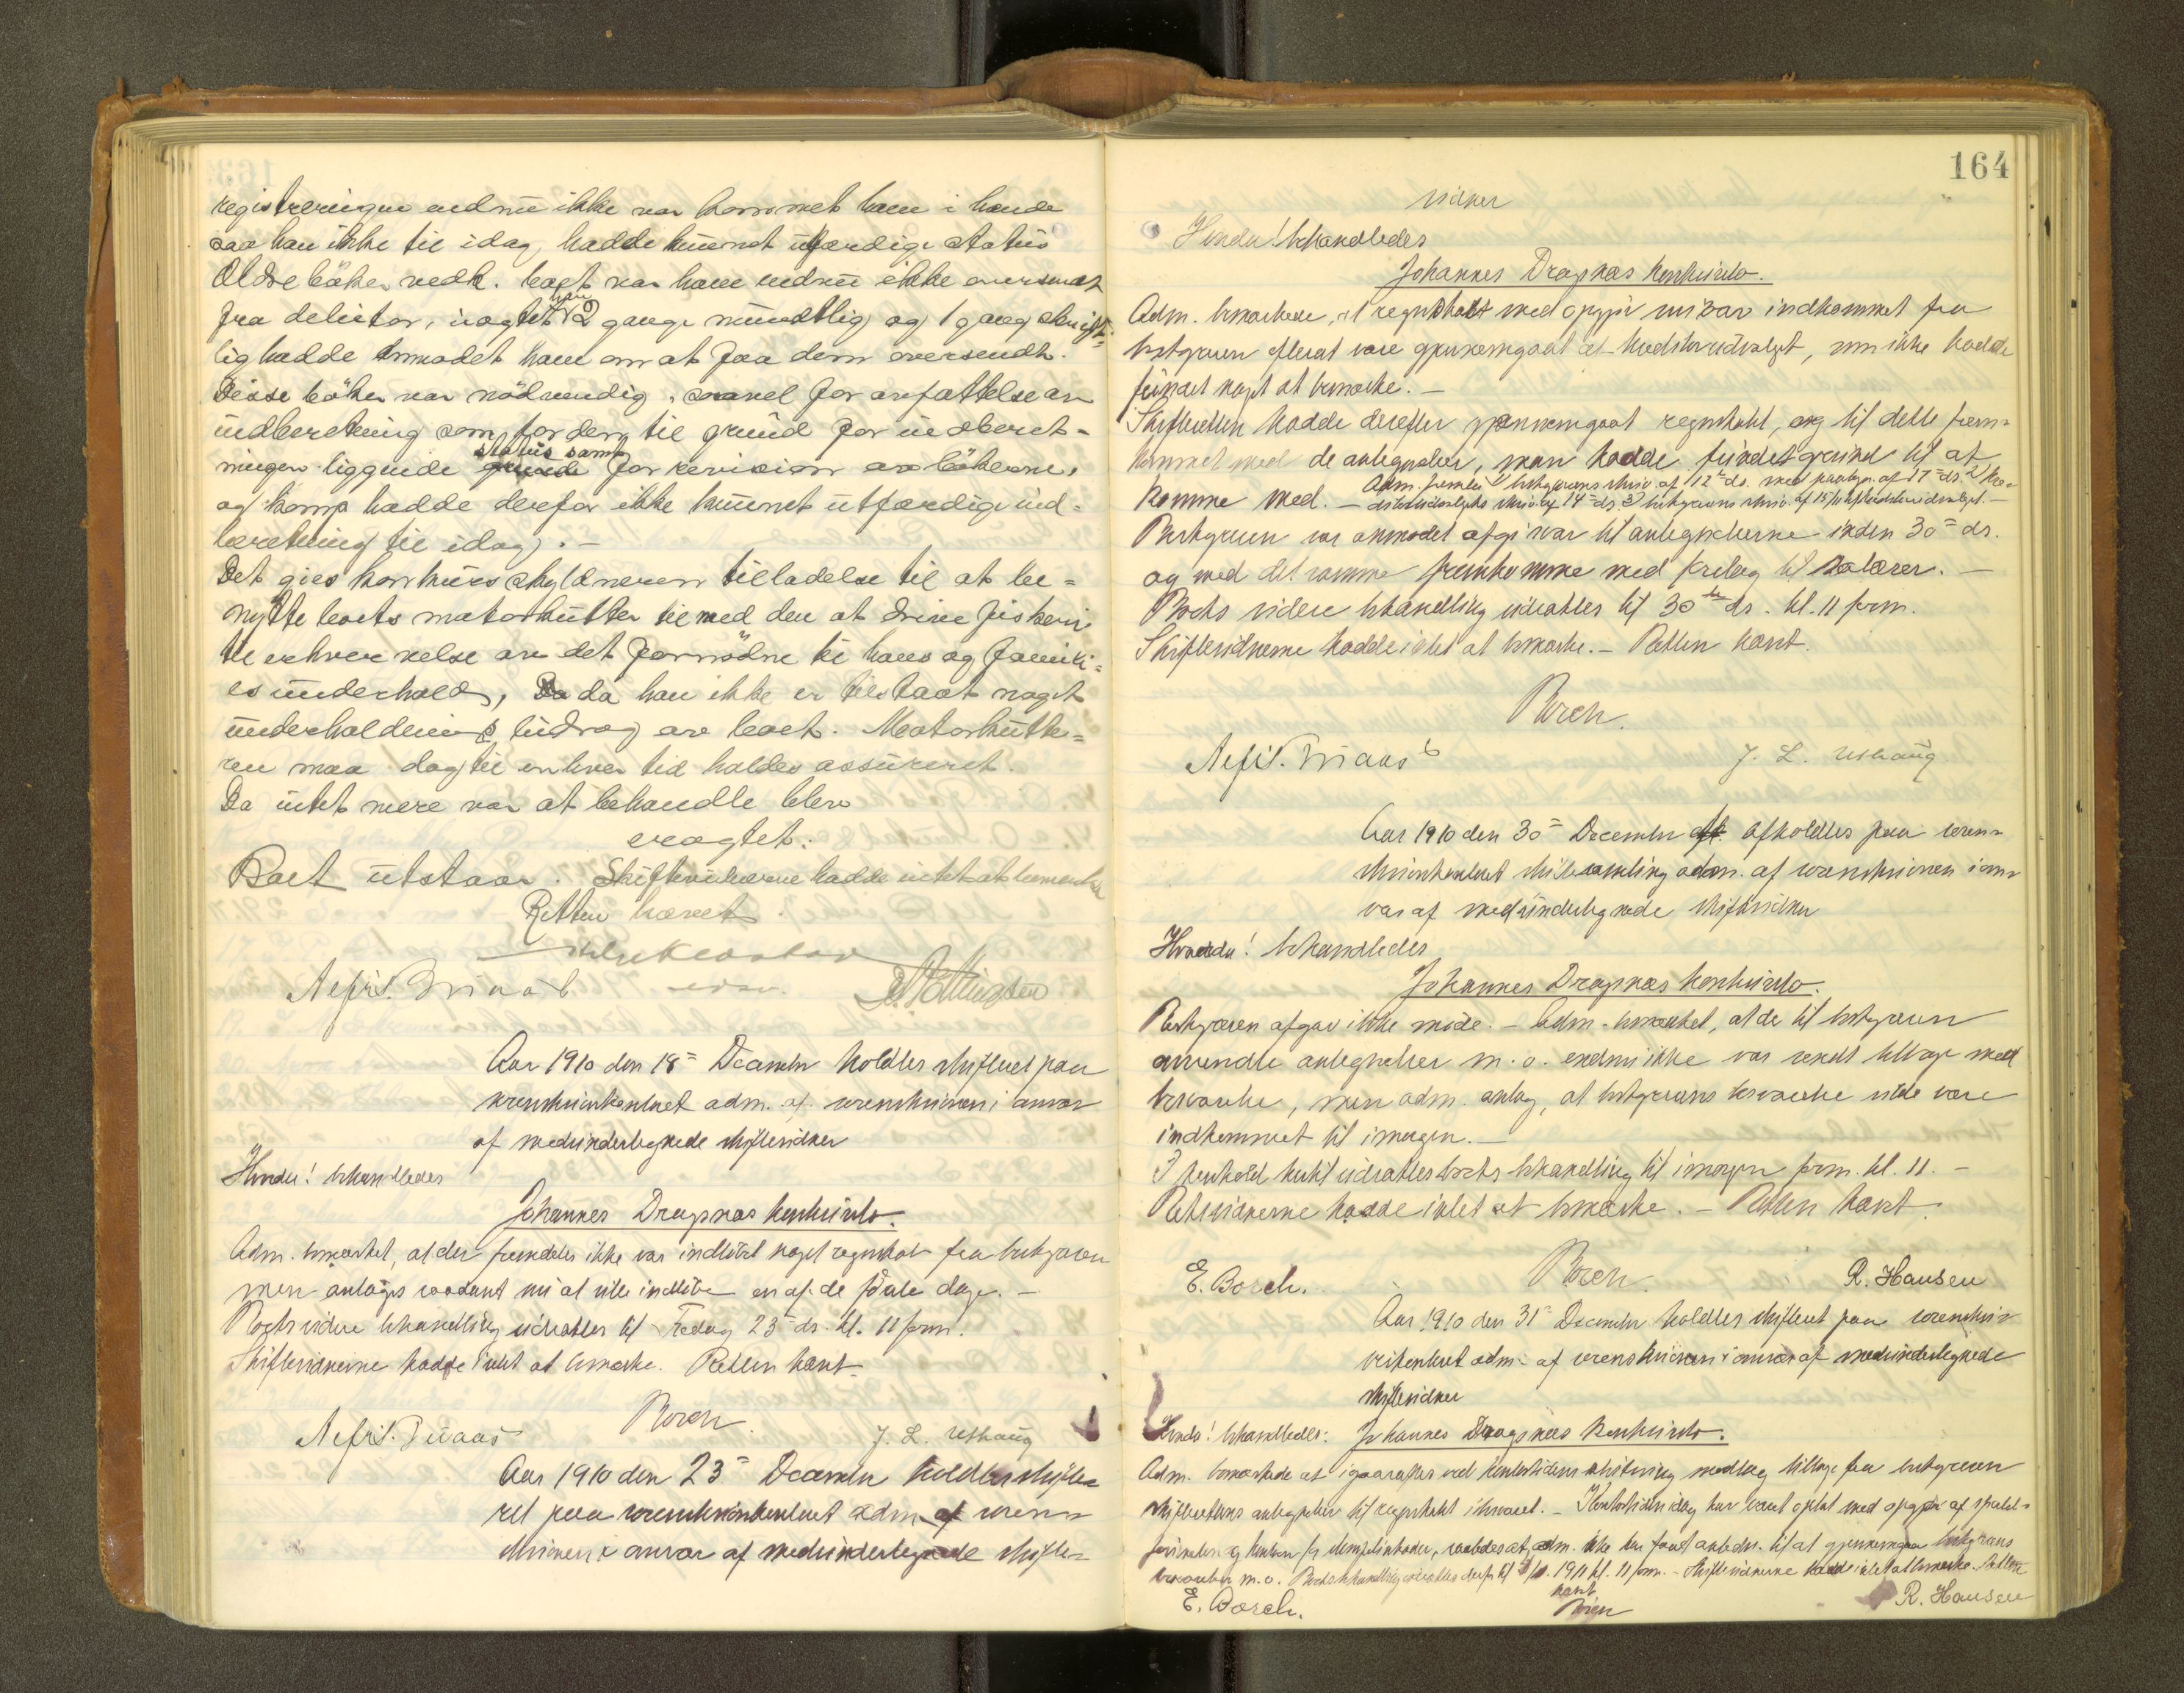 registreringen endnu ikke var kommet ham i hænde
saa han ikke til idag, hadde kunnet utfærdige status
Ældre bøker vedk. boet var ham endnu ikke oversendt
fra debitor, uagtet han 2 gange mundtlig og 1 gang skrift-
lig hadde anmodet ham om at faa dem oversendt.
Disse bøker var nödvendig, saavel for avfattelse av
indberetning som for den til grund for indberet-
ningen liggende status samt for revision av bökerne,
og komp hadde derfor ikke kunnet utfærdige ind-
beretning til idag. -
Det gies konkursskyldneren tilladelse til at be-
nytte boets motorkutter til med den at drive fiskeri
til erhvervelse av det fornödne til hans og famili-
es underhold, da han ikke er tilstaat noget
underholdningsbidrag av boet. Motorkutte-
ren maa dog til enhver tid holdes assureret.
Da intet mere var at behandle blev
eragtet:
Boet utstaar. Skiftevidnerne hadde intet at bemerke
Retten hævet.
Aar 1910 den 18= December holdtes skifteret paa
sorenskriverkontoret adm. af sorenskriveren i anvær
af medundertegnede skiftevidner
Hvorda! behandledes
Johannes Dragnæs konkursbo.
Adm. bemærket, at der fremdeles ikke var indløbet noget regnskab fra bestyreren
men antages saadant nu at ville indløbe en af de første dage. -
Boets videre behandling utsættes til Fredag 23= ds. kl. 11 form.
Skiftevidnerne hadde intet at bemærke. Retten hævt.
Borch.
J. L. Ushaug
Aar 1910 den 23= December holdtes skifte-
ret paa sorenskriverkontoret adm. af soren-
skriveren i anvær af medundertegnede skifte-
164
vidner
Hvorda! behandledes
Johannes Dragnæs konkursbo.
Adm. bemærkede, at regnskabet med opgjør nu var indkommet fra
bestyreren efterat være gjennemgaat af kreditorudvalget, som ikke hadde
fundet noget at bemærke. -
Skifteretten hadde derefter gjennemgaat regnskabet, og til dette frem-
kommet med de antegnelser, man hadde fundet grund til at
komme med. - Adm. fremla 1) bestyrerens skriv. af 12= ds. med paategn. af 17= ds. 2) kre-
ditorudvalgets skriv. af 14= ds. 3) bestyrerens skriv. af 15/12
Bestyreren var anmodet afgi svar til antegnelserne inden 30= ds.
og med det samme fremkomme med forslag til salærer. -
Boets videre behandling utsættes til 30te ds. kl. 11 form.
Skiftevidnerne hadde intet at bemærke. - Retten hævt.
Borch.
J. L. Ushaug
Aar 1910 den 30= December afholdtes paa soren-
skriverkontoret skiftesamling adm. af sorenskriveren i an-
vær af medundertegnede skiftevidner
Hvorda! behandledes
Johannes Dragnæs konkursbo.
Bestyreren afgav ikke møde. - Adm. bemærket, at de til bestyreren
anvendte antegnelser m. v. endnu ikke var sendt tilbage med
besvarelse, men adm. antog, at bestyrerens besvarelse vilde være
indkommet til imorgen. -
I henhold hertil utsættes boets behandling til imorgen form. kl. 11. -
Retsvidnerne hadde intet at bemærke. - Retten hævt.
E. Borch. Borch. R. Hansen
Aar 1910 den 31= December holdtes skifteret paa sorenskri-
verkontoret adm. af sorenskriveren i anvær af medundertegnede
skiftevidner
Hvorda! behandledes: Johannes Dragnæs konkursbo.
Adm. bemærkede at igaaraftes ved kontortidens slutning modtog tilbage fra bestyreren
skifterettens antegnelser til regnskabet i besvaret. - Kontortiden idag har været optat med opgjør af
ikke har faaet anledn. til at gjennemgaa bestyrerens
besvarelse m. v. Boets behandling utsættes derfor til 1911 kl. 11 form. - Skiftevidnerne hadde intet at bemærke. Retten
hævt
E. Borch. Borch R. Hansen